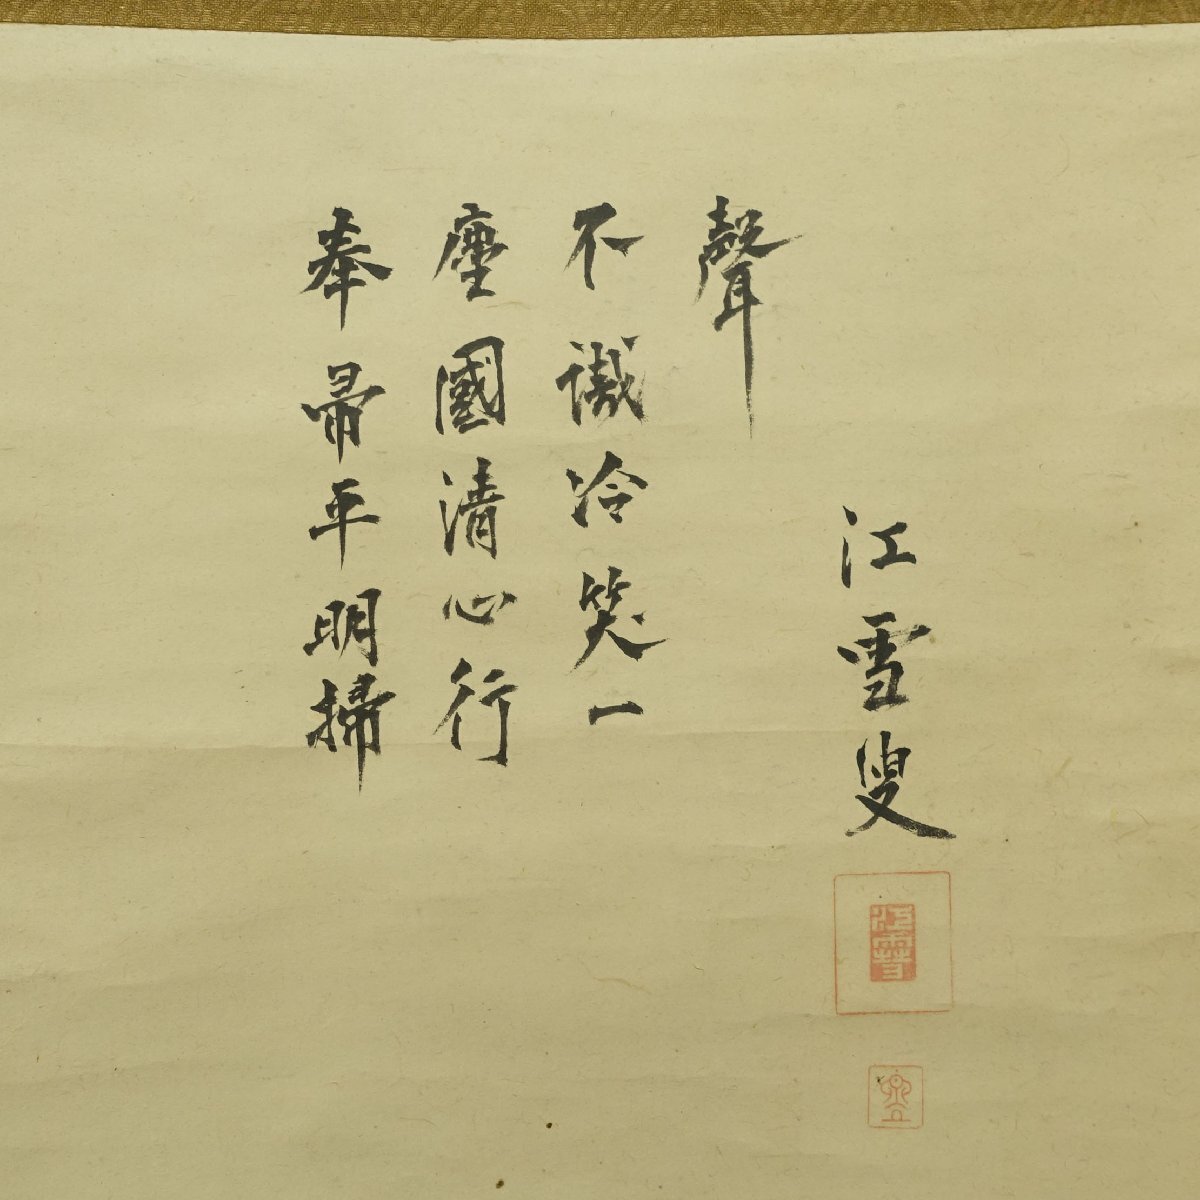 奉帚平明掃
塵國清心行
不識冷笑一
聲
江雪叟
江雪